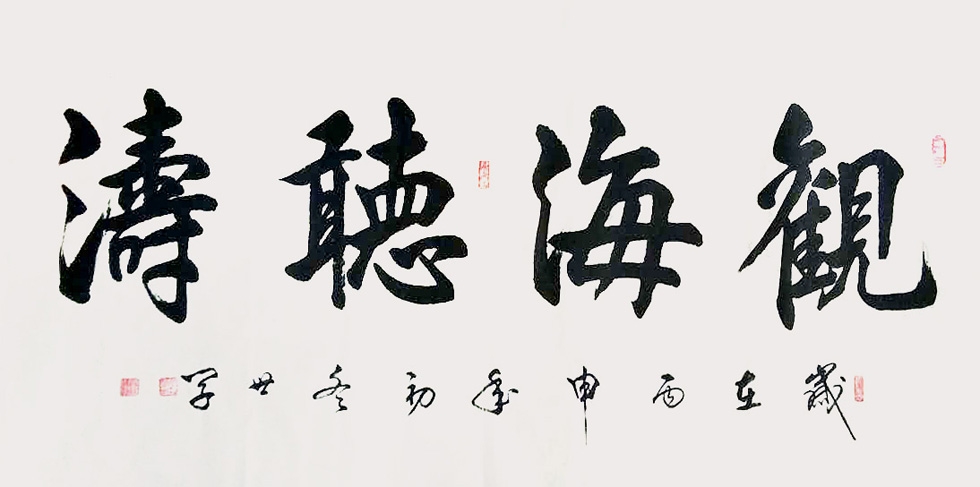 觀海聽濤
歲在丙申年初冬世学